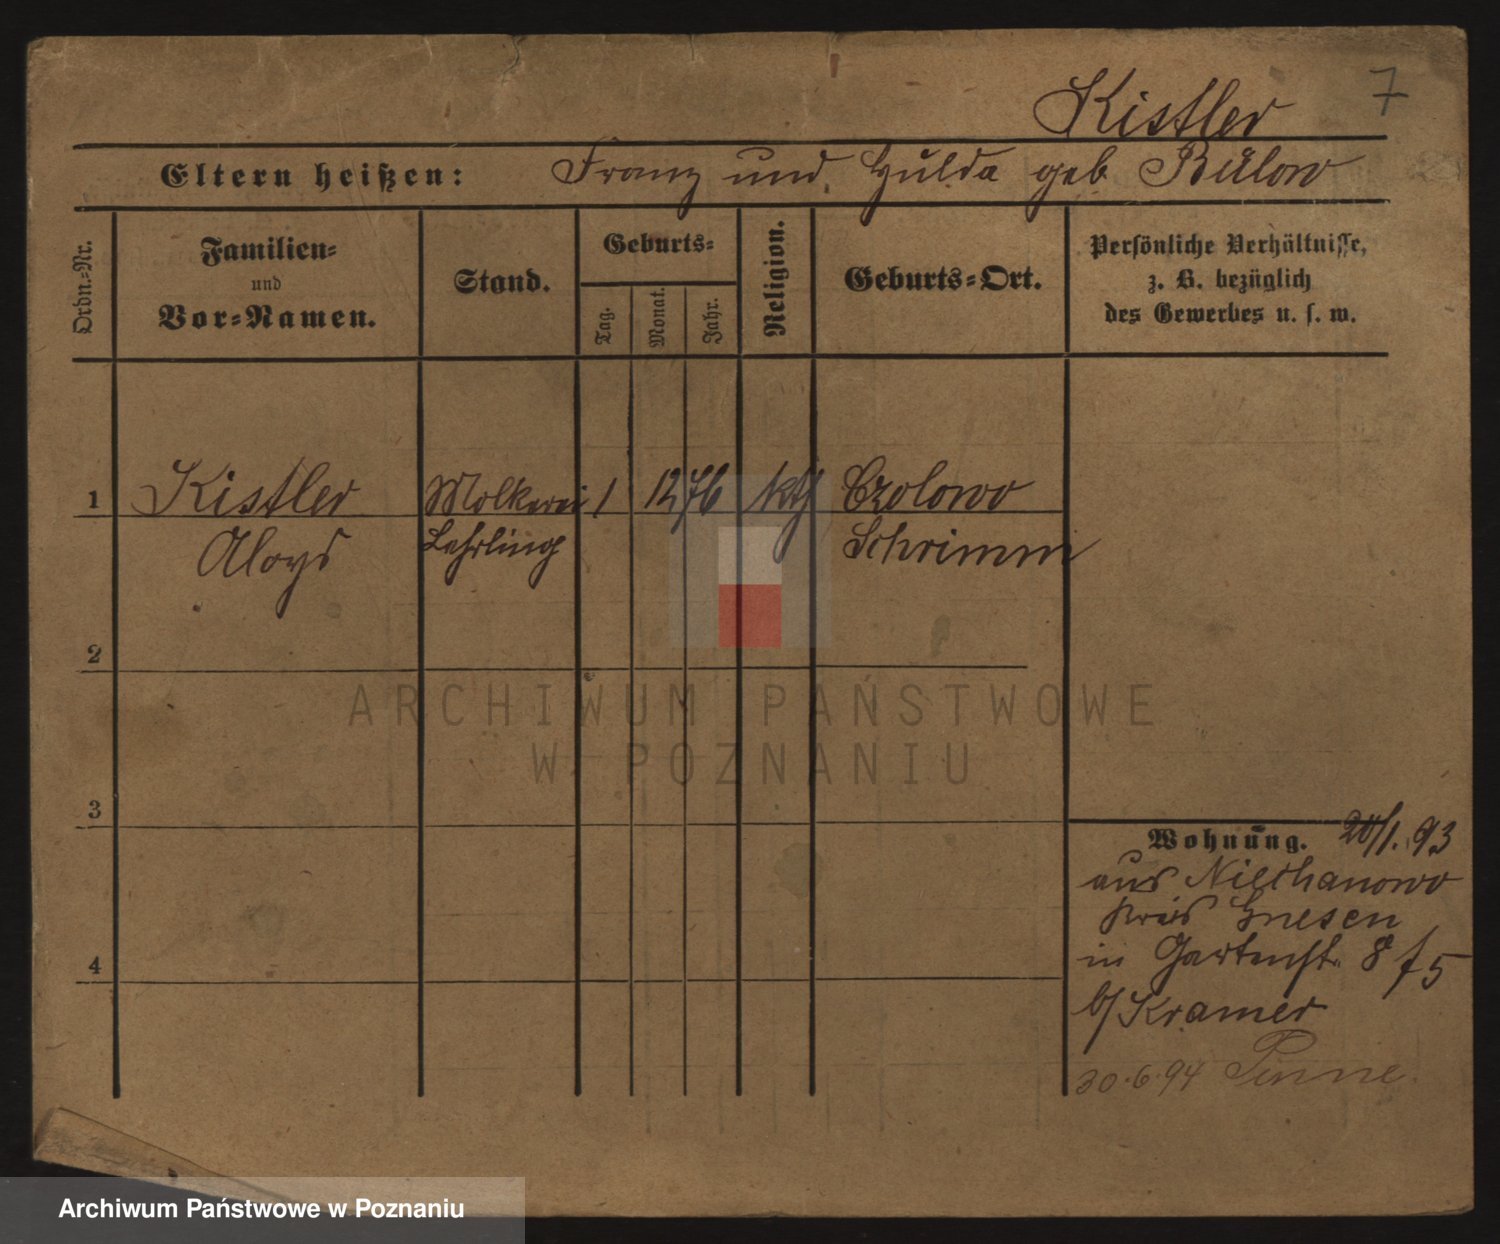 7
Kistler
Eltern heißen: Franz und Hulda geb Bülow
Ordn.=Nr.
Familien=
und
Vor=Namen.
Stand.
Geburts=
Tag.
Monat.
Jahr.
Religion.
Geburts=Ort.
Persönliche Verhältnisse,
z. B. bezüglich
des Gewerbes u. s. w.
1 Kistler Molkerei 1 12 76 kth Czolowo
Aloys Lehrling Schrimm
2
3
4
Wohnung. 20/1. 93
aus Niechanowo
Kreis Gnesen
in Gartenst. 8 f 5
b/ Kramer
30.6.94 Pinne.
ARCHIWUM PAŃSTWOWE
W POZNANIU
Archiwum Państwowe w Poznaniu